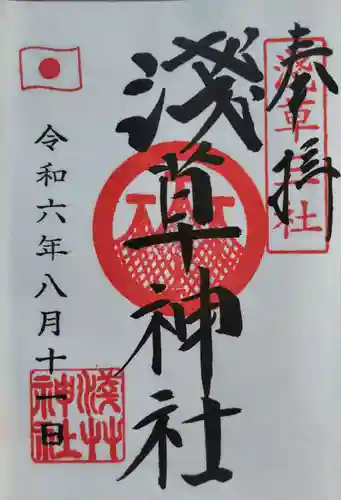 奉拝
淺草神社
淺草神社
令和六年八月十一日
淺艸神社